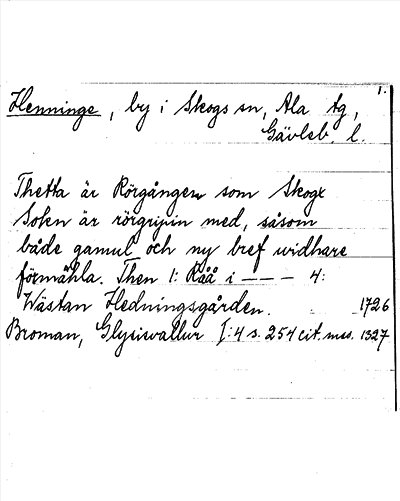 1.
Henninge, by i Skogs sn, Ala tg,
Gävleb. l.
Thetta är Rörgången som Skogx
Soken är rörgripin med, såsom
både gamul och ny bref widhare
förmähla. Then 1: Råå i — — — 4:
Wästan Hedningsgården. 1726
Broman, Glysisvallur I:4 s. 254 cit. mss. 1327